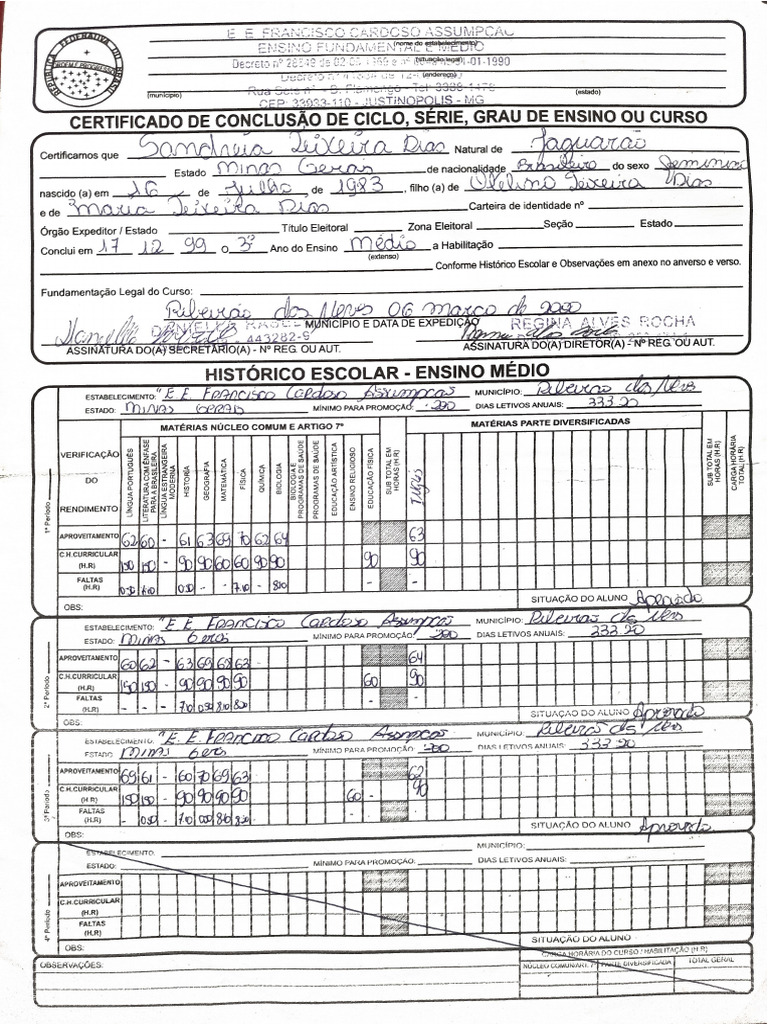 REPÚBLICA FEDERATIVA DO BRASIL
E E FRANCISCO CARDOSO ASSUMPCAO
(nome do estabelecimento)
ENSINO FUNDAMENTAL E MEDIO
(situação legal)
Decreto nº
01-1990
(endereço)
(município) (estado)
CEP: 33933-110 - JUSTINOPOLIS - MG
CERTIFICADO DE CONCLUSÃO DE CICLO, SÉRIE, GRAU DE ENSINO OU CURSO
Certificamos que Sandreia Teixeira Dias Natural de Jaguarão
Estado Minas Gerais de nacionalidade Brasileiro do sexo Feminino
nascido (a) em 16 de Julho de 1983, filho (a) de Olelino Teixeira Dias
e de Maria Teixeira Dias Carteira de identidade nº
Órgão Expeditor / Estado Título Eleitoral Zona Eleitoral Seção Estado
Conclui em 17 12 99 o 3º Ano do Ensino Médio a Habilitação
(extenso)
Conforme Histórico Escolar e Observações em anexo no anverso e verso.
Fundamentação Legal do Curso:
Ribeirão das Neves 06 março de 2000
MUNICÍPIO E DATA DE EXPEDIÇÃO
REGINA ALVES ROCHA
443282-9
ASSINATURA DO(A) SECRETÁRIO(A) - Nº REG. OU AUT. ASSINATURA DO(A) DIRETOR(A) - Nº REG. OU AUT.
HISTÓRICO ESCOLAR - ENSINO MÉDIO
ESTABELECIMENTO: "E E Francisco Cardoso Assumpcao MUNICÍPIO: Ribeirão das Neves
ESTADO: Minas Gerais MÍNIMO PARA PROMOÇÃO: 200 DIAS LETIVOS ANUAIS: 333.20
MATÉRIAS NÚCLEO COMUM E ARTIGO 7º MATÉRIAS PARTE DIVERSIFICADAS
1º Período
VERIFICAÇÃO DO RENDIMENTO
LÍNGUA PORTUGUÊS
LITERATURA COM ÊNFASE PARA A BRASILEIRA
LÍNGUA ESTRANGEIRA MODERNA
HISTÓRIA
GEOGRAFIA
MATEMÁTICA
FÍSICA
QUÍMICA
BIOLOGIA
BIOLOGIA E PROGRAMAS DE SAÚDE
PROGRAMAS DE SAÚDE
EDUCAÇÃO ARTÍSTICA
ENSINO RELIGIOSO
EDUCAÇÃO FÍSICA
SUB TOTAL EM HORAS (H.R)
SUB TOTAL EM HORAS (H.R)
CARGA HORÁRIA TOTAL (H.R)
APROVEITAMENTO 62 60 - 61 63 69 70 62 64 63
C.H.CURRICULAR (H.R) 150 150 - 90 90 60 60 90 90 90 90
FALTAS (H.R) - - - -
OBS: SITUAÇÃO DO ALUNO Aprovado
2º Período
ESTABELECIMENTO: "E E Francisco Cardoso Assumpcao MUNICÍPIO: Ribeirão das Neves
ESTADO: Minas Gerais MÍNIMO PARA PROMOÇÃO: 200 DIAS LETIVOS ANUAIS: 333.20
APROVEITAMENTO 60 62 - 63 69 68 63 64
C.H.CURRICULAR (H.R) 150 150 - 90 90 90 90 60 90
FALTAS (H.R) - - -
OBS: SITUAÇÃO DO ALUNO Aprovado
3º Período
ESTABELECIMENTO: "E E Francisco Cardoso Assumpcao MUNICÍPIO: Ribeirão das Neves
ESTADO: Minas Gerais MÍNIMO PARA PROMOÇÃO: 200 DIAS LETIVOS ANUAIS: 333.20
APROVEITAMENTO 69 61 - 60 70 69 63 62
C.H.CURRICULAR (H.R) 150 150 - 90 90 90 90 60 - 90
FALTAS (H.R) - -
OBS: SITUAÇÃO DO ALUNO Aprovado
4º Período
ESTABELECIMENTO: MUNICÍPIO:
ESTADO: MÍNIMO PARA PROMOÇÃO: DIAS LETIVOS ANUAIS:
APROVEITAMENTO
C.H.CURRICULAR (H.R)
FALTAS (H.R)
OBS: SITUAÇÃO DO ALUNO
OBSERVAÇÕES:
CARGA HORÁRIA DO CURSO / HABILITAÇÃO (H.R)
NÚCLEO COMUM/ART. 7º PARTE DIVERSIFICADA TOTAL GERAL